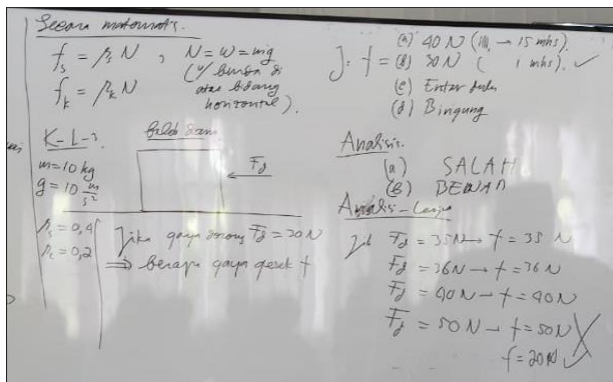 Secara matematis.
fs = μs N , N = w = mg
(u/ benda di
atas bidang
horizontal).
fk = μk N
K-L-3
balok diam
m = 10 kg
g = 10 m/s²
Fd
μs = 0,4
μk = 0,2
Jika gaya dorong Fd = 30 N
⇒ berapa gaya gesek f
J. f =
(a) 40 N ( → 15 mhs).
(b) 30 N ( 1 mhs). ✓
(c) Entar dulu
(d) Bingung
Analisis.
(a) SALAH
(b) BENAR
Analisis - Lanjut
Jik Fd = 35 N → f = 35 N
Fd = 36 N → f = 36 N
Fd = 40 N → f = 40 N
Fd = 50 N → f = 50 N
f = 20 N ✓